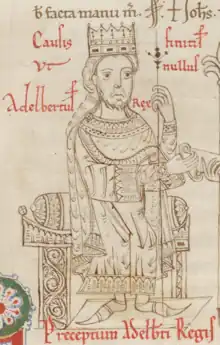 facta manu
Caulis finitis
Vt nullus
Adelbertus Rex
Preceptum Adelbti Regis